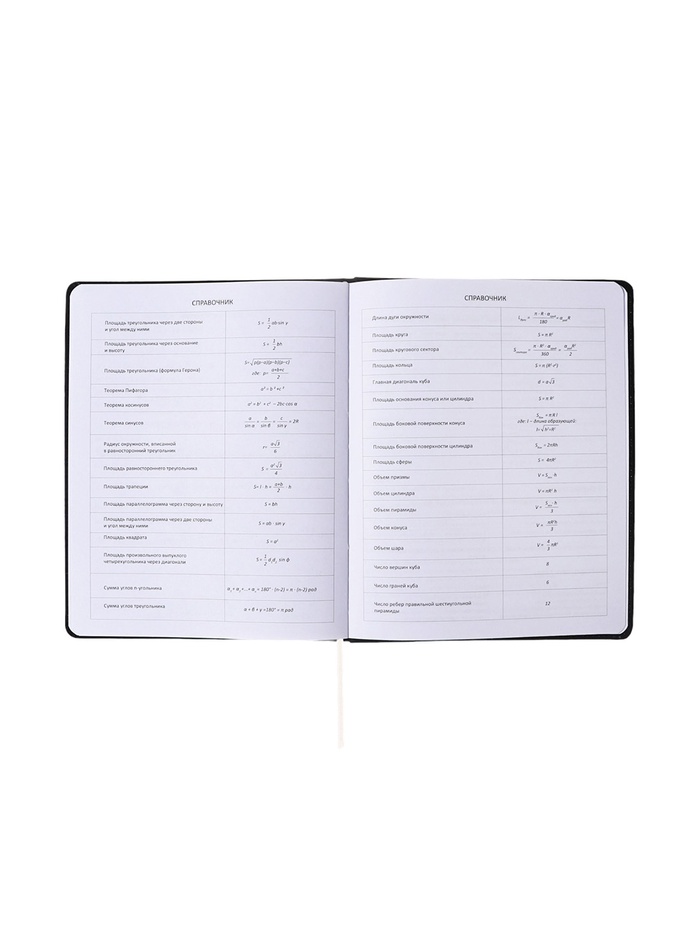 СПРАВОЧНИК
Площадь треугольника через две стороны
и угол между ними
S = 1/2 ab·sin γ
Площадь треугольника через основание
и высоту
S = 1/2 bh
Площадь треугольника (формула Герона)
S=√p(p−a)(p−b)(p−c)
где: p= a+b+c/2
Теорема Пифагора
Теорема косинусов
Теорема синусов
a/sin α = b/sin β = c/sin γ = 2R
Радиус окружности, вписанной
в равносторонний треугольник
r= a√3/6
Площадь равностороннего треугольника
S = a²√3/4
Площадь трапеции
S= l · h = a+b/2 · h
Площадь параллелограмма через сторону и высоту
S = bh
Площадь параллелограмма через две стороны
и угол между ними
S = ab · sin γ
Площадь квадрата
S = a²
Площадь произвольного выпуклого
четырехугольника через диагонали
S = 1/2 d₁d₂ sin φ
Сумма углов n-угольника
α₁ + α₂+...+ αₙ = 180° · (n-2) = π · (n-2) рад
Сумма углов треугольника
α + β + γ =180° = π рад
СПРАВОЧНИК
Длина дуги окружности
Площадь круга
S = π R²
Площадь кругового сектора
Площадь кольца
S = π (R²-r²)
Главная диагональ куба
d = a√3
Площадь основания конуса или цилиндра
S = π R²
Площадь боковой поверхности конуса
Sбок = π R l
где: l – длина образующей:
l=√h²+R²
Площадь боковой поверхности цилиндра
Sбок = 2πRh
Площадь сферы
S = 4πR²
Объем призмы
V = Sосн · h
Объем цилиндра
V = πR² h
Объем пирамиды
V = Sосн · h/3
Объем конуса
V = πR²h/3
Объем шара
V = 4/3 πR³
Число вершин куба
8
Число граней куба
6
Число ребер правильной шестиугольной
пирамиды
12